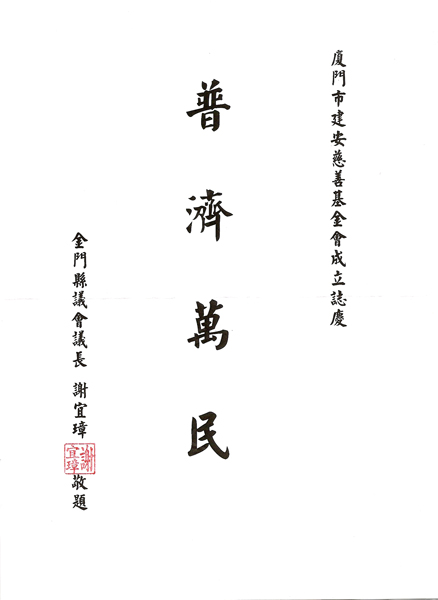 廈門市建安慈善基金會成立誌慶
普濟萬民
金門縣議會議長 謝宜璋 敬題
謝宜璋